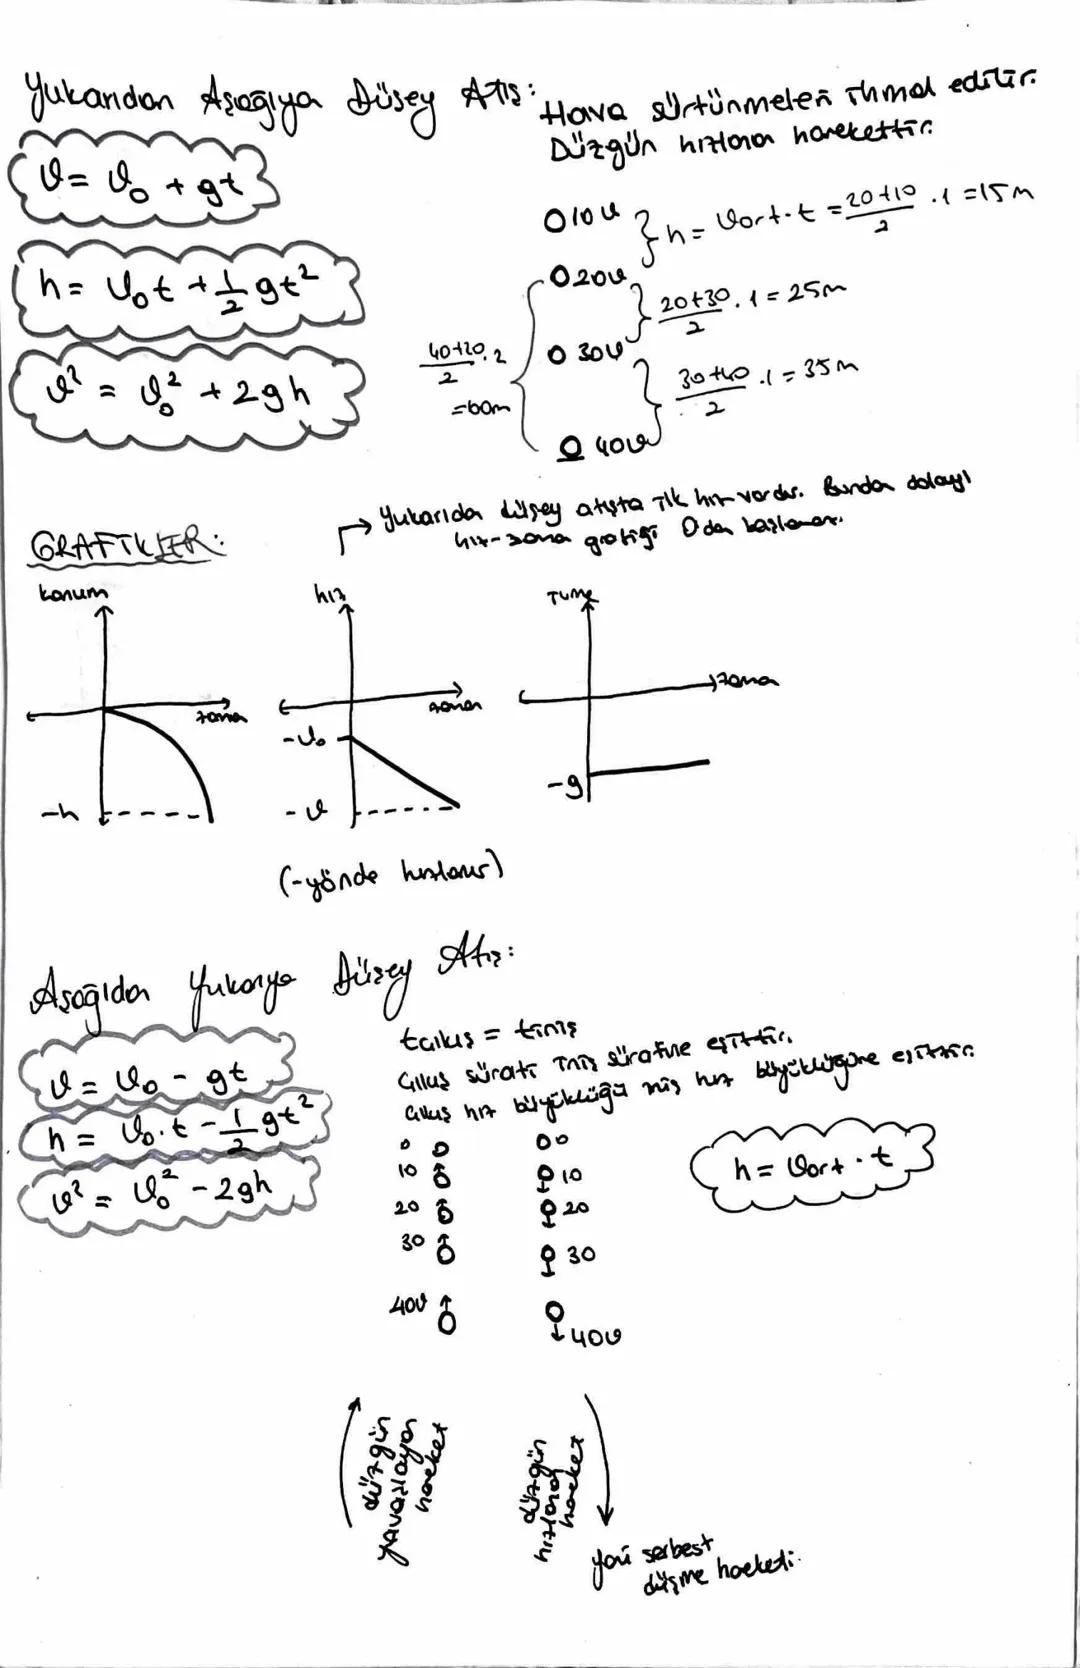 Yukarıdan Aşağıya Düşey Atış:
Hava sürtünmeleri ihmal edilir.
Düzgün hızlanan harekettir.
v = v₀ + gt
h = v₀t + 1/2 gt²
v² = v₀² + 2gh
10v
20v
30v
40v
h = vort.t = 20+10/2 .1 = 15m
20+30/2 .1 = 25m
30+40/2 .1 = 35m
40+20/2 .2
=60m
GRAFİKLER:
Yukarıda düşey atışta ilk hız vardır. Bundan dolayı
hız-zaman grafiği 0 dan başlamaz.
konum
zaman
-h
hız
zaman
-v₀
-v
(-yönde hızlanır)
ivme
zaman
-g
Aşağıdan Yukarıya Düşey Atış:
v = v₀ - gt
h = v₀.t - 1/2 gt²
v² = v₀² - 2gh
tçıkış = tiniş
Çıkış sürati iniş süratine eşittir.
Çıkış hız büyüklüğü iniş hız büyüklüğüne eşittir.
h = vort . t
0
10
20
30
40v
0
10
20
30
40v
düzgün
yavaşlayan
hareket
düzgün
hızlanan
hareket
yani serbest
düşme hareketi.